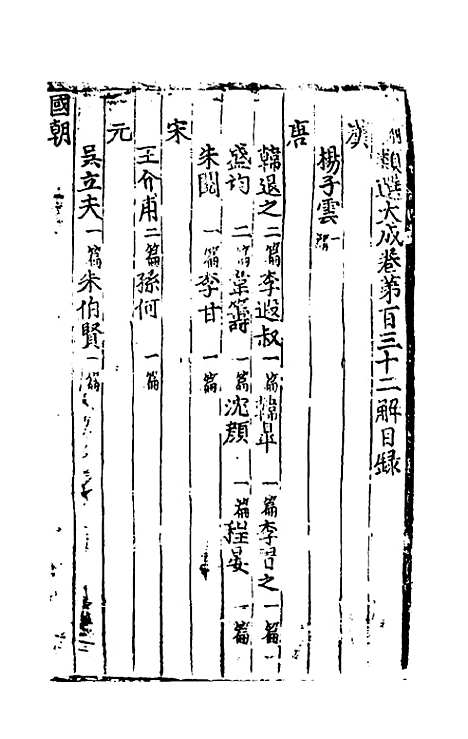 類選大成卷第百三十二解目錄
漢
揚子雲一篇
唐
韓退之二篇李遐叔一篇韓皐一篇李習之一篇
盛均二篇韋籌一篇沈顏一篇程晏一篇
朱閱一篇李甘一篇
宋
王介甫二篇孫何一篇
元
吳立夫一篇朱伯賢一篇
國朝